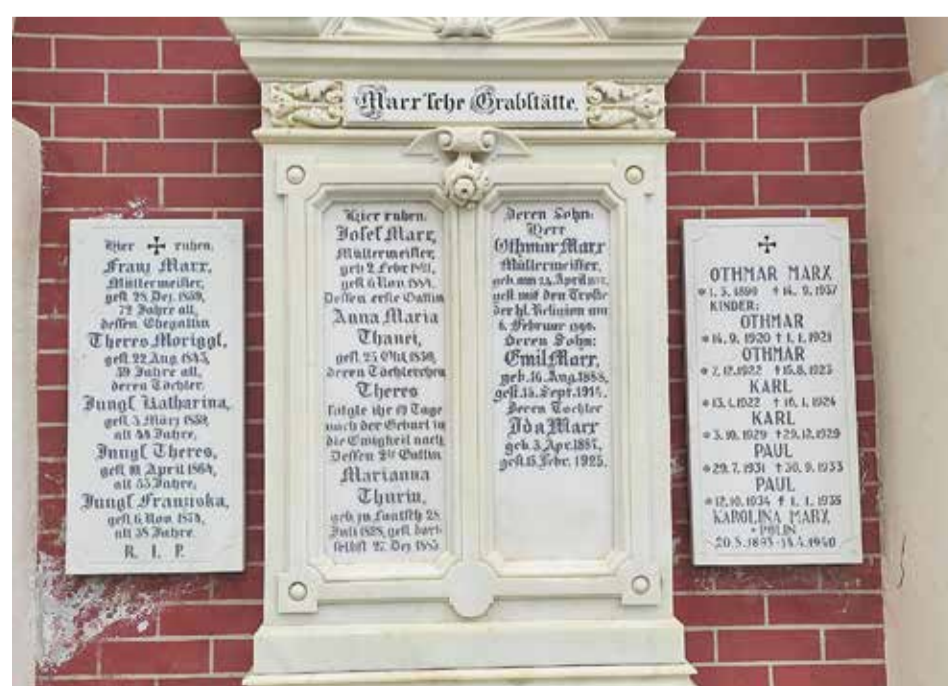 Marx'sche Grabstätte.
Hier ruhen.
Franz Marx,
Müllermeister,
gest. 28. Dez. 1859,
72 Jahre alt,
dessen Ehegattin
Theres Moriggl,
gest. 22. Aug. 1843,
39 Jahre alt,
deren Töchter.
Jungf. Katharina,
gest. 3. März 1859,
alt 44 Jahre,
Jungf. Theres,
gest. 10. April 1864,
alt 53 Jahre,
Jungf. Franziska,
gest. 6. Nov. 1874,
alt 58 Jahre.
R. I. P.
Hier ruhen.
Josef Marx,
Müllermeister,
geb. 2. Febr.
gest. 6. Nov.
Dessen erste Gattin
Anna Maria
Thanei,
gest. 25. Okt. 1850,
deren Töchterchen
Theres
folgte ihr 19 Tage
nach der Geburt in
die Ewigkeit nach.
Dessen 2te Gattin
Marianna
Thurin,
geb. zu Laatsch 28.
Juli 1828, gest. dort-
selbst 27. Dez. 1885
Deren Sohn:
Herr
Othmar Marx
Müllermeister,
geb. am 24. April
gest. mit den Troste
der hl. Religion am
6. Februar
Deren Sohn:
Emil Marx,
geb. 16. Aug. 1888,
gest. 15. Sept. 1914.
Deren Tochter
Ida Marx
geb. 3. Apr. 1887,
gest. 15. Febr. 1925.
OTHMAR MARX
* 1. 3. 1890 † 14. 9. 1937
KINDER:
OTHMAR
* 14. 9. 1920 † 1. 1. 1921
OTHMAR
* 7. 12. 1922 † 15. 8. 1923
KARL
* 13. 1. 1922 † 16. 1. 1924
KARL
* 3. 10. 1929 † 29. 12. 1929
PAUL
* 29. 7. 1931 † 30. 9. 1933
PAUL
* 12. 10. 1934 † 1. 1. 1935
KAROLINA MARX
20. 5. 1893 - 14. 4. 1940